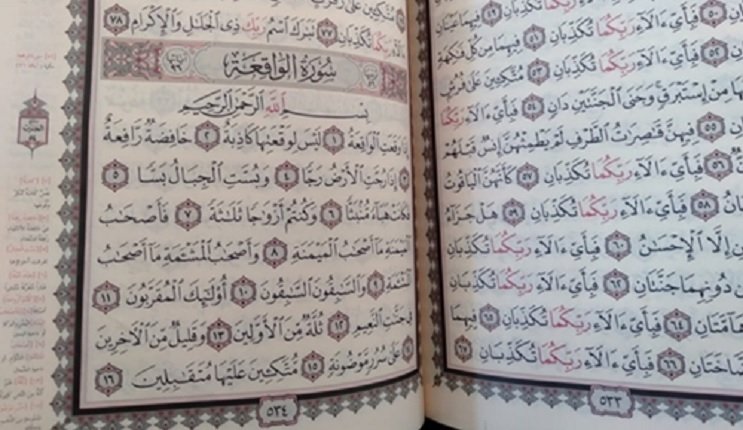 فَبِأَيِّ ءَالَآءِ رَبِّكُمَا تُكَذِّبَانِ ٤٩ فِيهِمَا عَيْنَانِ
٥٠ فَبِأَيِّ ءَالَآءِ رَبِّكُمَا تُكَذِّبَانِ ٥١ فِيهِمَا مِن كُلِّ فَٰكِهَةٍ
٥٢ فَبِأَيِّ ءَالَآءِ رَبِّكُمَا تُكَذِّبَانِ ٥٣ مُتَّكِـِٔينَ عَلَىٰ فُرُشٍۭ
مِنْ إِسْتَبْرَقٍ وَجَنَى ٱلْجَنَّتَيْنِ دَانٍ ٥٤ فَبِأَيِّ ءَالَآءِ رَبِّكُمَا
٥٥ فِيهِنَّ قَٰصِرَٰتُ ٱلطَّرْفِ لَمْ يَطْمِثْهُنَّ إِنسٌ قَبْلَهُمْ
٥٦ فَبِأَيِّ ءَالَآءِ رَبِّكُمَا تُكَذِّبَانِ ٥٧ كَأَنَّهُنَّ ٱلْيَاقُوتُ
٥٨ فَبِأَيِّ ءَالَآءِ رَبِّكُمَا تُكَذِّبَانِ ٥٩ هَلْ جَزَآءُ
إِلَّا ٱلْإِحْسَٰنُ ٦٠ فَبِأَيِّ ءَالَآءِ رَبِّكُمَا تُكَذِّبَانِ
دُونِهِمَا جَنَّتَانِ ٦٢ فَبِأَيِّ ءَالَآءِ رَبِّكُمَا تُكَذِّبَانِ
٦٤ فَبِأَيِّ ءَالَآءِ رَبِّكُمَا تُكَذِّبَانِ ٦٥ فِيهِمَا
٦٦ فَبِأَيِّ ءَالَآءِ رَبِّكُمَا تُكَذِّبَانِ ٦٧
٥٣٣
مُتَّكِـِٔينَ عَلَىٰ رَفْرَفٍ
رَبِّكُمَا تُكَذِّبَانِ ٧٧ تَبَٰرَكَ ٱسْمُ رَبِّكَ ذِى ٱلْجَلَٰلِ وَٱلْإِكْرَامِ ٧٨
سُورَةُ الوَاقِعَةِ
بِسْمِ ٱللَّهِ ٱلرَّحْمَٰنِ ٱلرَّحِيمِ
إِذَا وَقَعَتِ ٱلْوَاقِعَةُ ١ لَيْسَ لِوَقْعَتِهَا كَاذِبَةٌ ٢ خَافِضَةٌ رَّافِعَةٌ
٣ إِذَا رُجَّتِ ٱلْأَرْضُ رَجًّا ٤ وَبُسَّتِ ٱلْجِبَالُ بَسًّا ٥
فَكَانَتْ هَبَآءً مُّنۢبَثًّا ٦ وَكُنتُمْ أَزْوَٰجًا ثَلَٰثَةً ٧ فَأَصْحَٰبُ
ٱلْمَيْمَنَةِ مَآ أَصْحَٰبُ ٱلْمَيْمَنَةِ ٨ وَأَصْحَٰبُ ٱلْمَشْـَٔمَةِ مَآ أَصْحَٰبُ
ٱلْمَشْـَٔمَةِ ٩ وَٱلسَّٰبِقُونَ ٱلسَّٰبِقُونَ ١٠ أُو۟لَٰٓئِكَ ٱلْمُقَرَّبُونَ ١١
فِى جَنَّٰتِ ٱلنَّعِيمِ ١٢ ثُلَّةٌ مِّنَ ٱلْأَوَّلِينَ ١٣ وَقَلِيلٌ مِّنَ ٱلْءَاخِرِينَ
١٤ عَلَىٰ سُرُرٍ مَّوْضُونَةٍ ١٥ مُّتَّكِـِٔينَ عَلَيْهَا مُتَقَٰبِلِينَ ١٦
٥٣٤